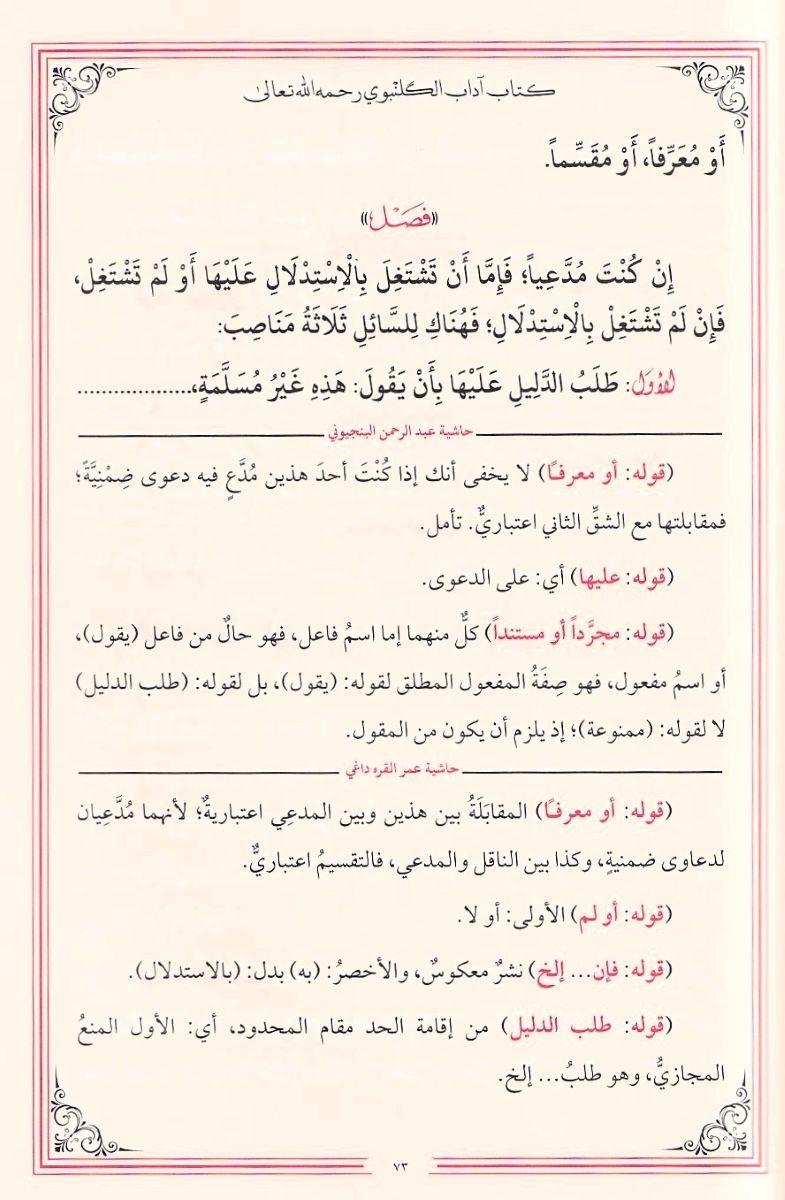 كتاب آداب الگلنبوي رحمه الله تعالى
أَوْ مُعَرِّفاً، أَوْ مُقَسِّماً.
«فَصْل»
إِنْ كُنْتَ مُدَّعِياً؛ فَإِمَّا أَنْ تَشْتَغِلَ بِالْاِسْتِدْلَالِ عَلَيْهَا أَوْ لَمْ تَشْتَغِلْ،
فَإِنْ لَمْ تَشْتَغِلْ بِالْاِسْتِدْلَالِ؛ فَهُنَاكِ لِلسَّائِلِ ثَلَاثَةُ مَنَاصِبَ:
الأوّل: طَلَبُ الدَّلِيلِ عَلَيْهَا بِأَنْ يَقُولَ: هَذِهِ غَيْرُ مُسَلَّمَةٍ،..................
حاشية عبد الرحمن البنجيوني
(قوله: أو معرفًا) لا يخفى أنك إذا كُنْتَ أحدَ هذين مُدَّعٍ فيه دعوى ضِمْنِيَّةً؛
فمقابلتها مع الشقِّ الثاني اعتباريٌّ. تأمل.
(قوله: عليها) أي: على الدعوى.
(قوله: مجرَّداً أو مستنداً) كلٌّ منهما إما اسمُ فاعل، فهو حالٌ من فاعل (يقول)،
أو اسمُ مفعول، فهو صِفَةُ المفعول المطلق لقوله: (يقول)، بل لقوله: (طلب الدليل)
لا لقوله: (ممنوعة)؛ إذ يلزم أن يكون من المقول.
حاشية عمر القره داغي
(قوله: أو معرفًا) المقابَلَةُ بين هذين وبين المدعِي اعتباريةٌ؛ لأنهما مُدَّعِيان
لدعاوى ضمنيةٍ، وكذا بين الناقل والمدعي، فالتقسيمُ اعتباريٌّ.
(قوله: أو لم) الأولى: أو لا.
(قوله: فإن... إلخ) نشرٌ معكوسٌ، والأخصرُ: (به) بدل: (بالاستدلال).
(قوله: طلب الدليل) من إقامة الحد مقام المحدود، أي: الأول المنعُ
المجازيُّ، وهو طلبُ... إلخ.
٧٣